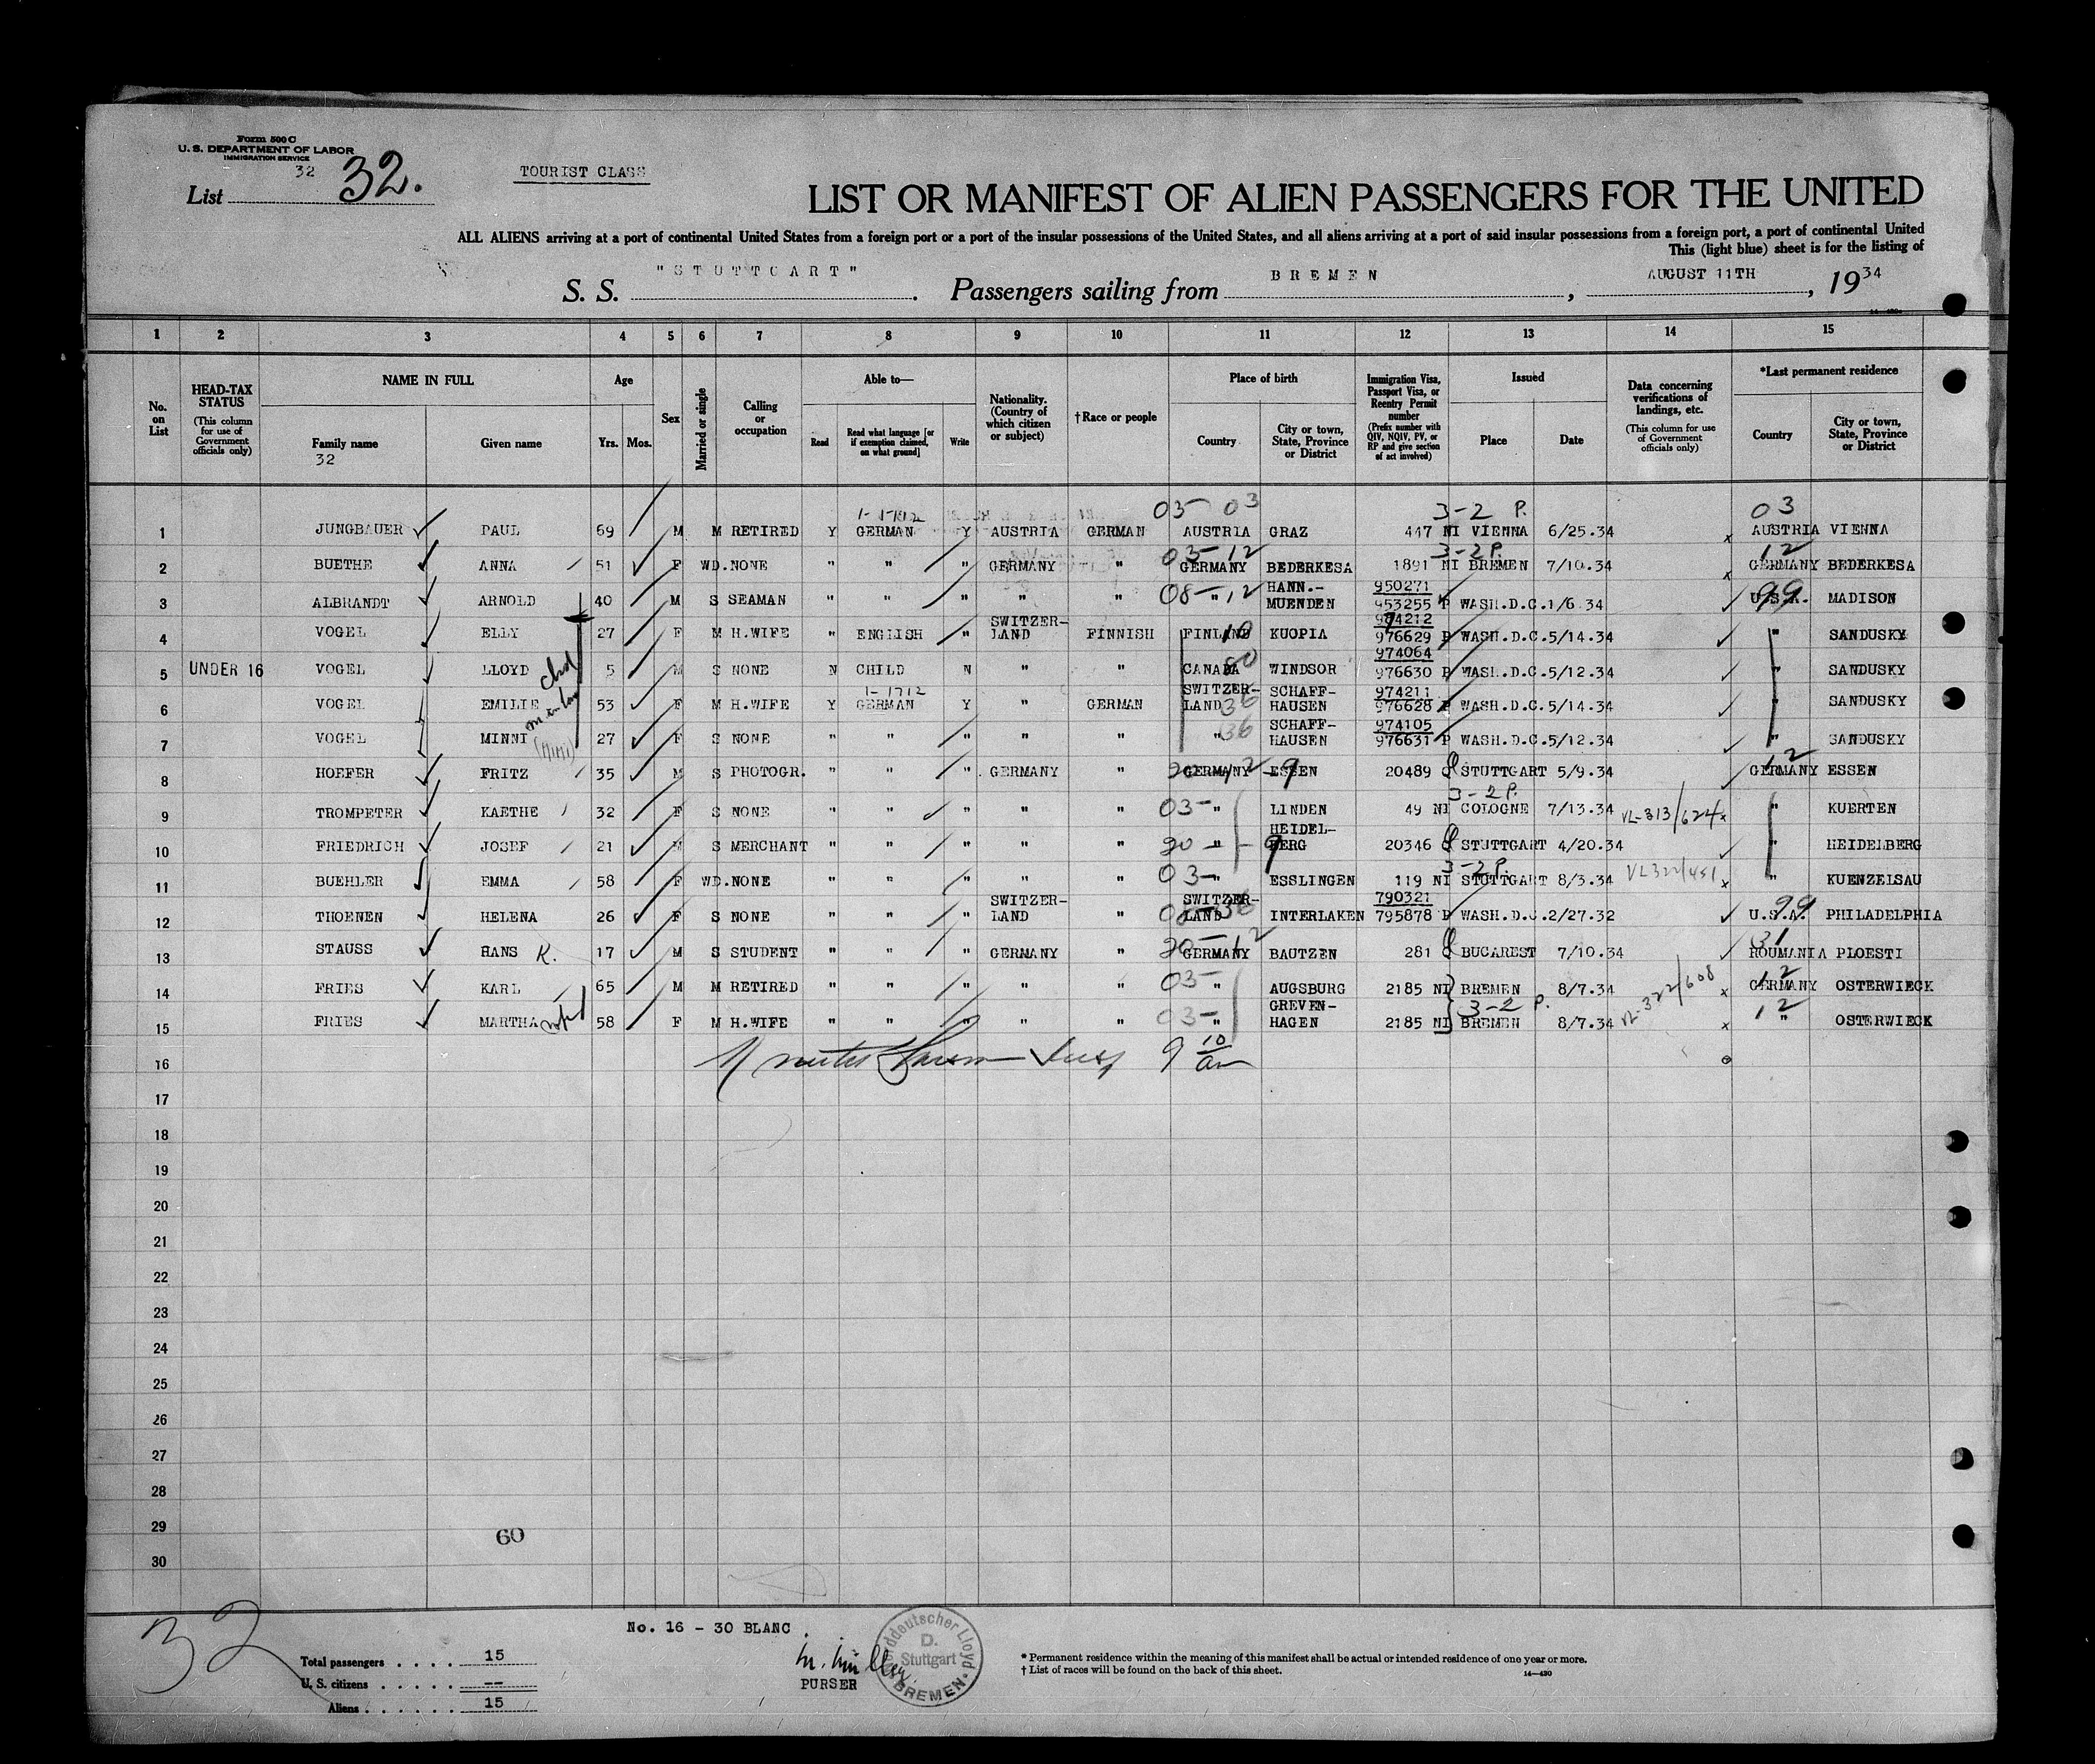 Form 500 C
U. S. DEPARTMENT OF LABOR
IMMIGRATION SERVICE
32
List 32.
TOURIST CLASS
LIST OR MANIFEST OF ALIEN PASSENGERS FOR THE UNITED
ALL ALIENS arriving at a port of continental United States from a foreign port or a port of the insular possessions of the United States, and all aliens arriving at a port of said insular possessions from a foreign port, a port of continental United
This (light blue) sheet is for the listing of
S. S. "STUTTGART". Passengers sailing from BREMEN, AUGUST 11TH, 1934
1 2 3 4 5 6 7 8 9 10 11 12 13 14 15
No. on List
HEAD-TAX STATUS (This column for use of Government officials only)
NAME IN FULL Family name Given name
32
Age Yrs. Mos.
Sex
Married or single
Calling or occupation
Able to— Read Read what language [or if exemption claimed, on what ground] Write
Nationality. (Country of which citizen or subject)
†Race or people
Place of birth Country City or town, State, Province or District
Immigration Visa, Passport Visa, or Reentry Permit number (Prefix number with QIV, NQIV, PV, or RP and give section of act involved)
Issued Place Date
Data concerning verifications of landings, etc. (This column for use of Government officials only)
*Last permanent residence Country City or town, State, Province or District
05 03 3-2 P. 03
1 JUNGBAUER PAUL 69 M M RETIRED Y GERMAN Y AUSTRIA GERMAN AUSTRIA GRAZ 447 NI VIENNA 6/25.34 x AUSTRIA VIENNA
03-12 3-2 P. 12
2 BUETHE ANNA 51 F WD. NONE " " " GERMANY " GERMANY BEDERKESA 1891 NI BREMEN 7/10.34 x GERMANY BEDERKESA
3 ALBRANDT ARNOLD 40 M S SEAMAN " " " " " 08-12 " HANN.-MUENDEN 950271 953255 P WASH.D.C. 1/6 34 U.S.A. 99 MADISON
4 VOGEL ELLY 27 F M H.WIFE " ENGLISH " SWITZER-LAND FINNISH FINLAND 10 KUOPIA 974212 976629 P WASH.D.C. 5/14.34 " SANDUSKY
5 UNDER 16 VOGEL LLOYD chd 5 M S NONE N CHILD N " " CANADA 80 WINDSOR 974064 976630 P WASH.D.C. 5/12.34 " SANDUSKY
1-1712
6 VOGEL EMILIE 53 F M H.WIFE Y GERMAN Y " GERMAN SWITZER-LAND 36 SCHAFF-HAUSEN 974211 976628 P WASH.D.C. 5/14.34 " SANDUSKY
7 VOGEL MINNI (MIMI) 27 F S NONE " " " " " " 36 SCHAFF-HAUSEN 974105 976631 P WASH.D.C. 5/12.34 " SANDUSKY
8 HOEFER FRITZ 35 M S PHOTOGR. " " " GERMANY " GERMANY ESSEN 9 20489 STUTTGART 5/9.34 GERMANY 12 ESSEN
3-2 P.
9 TROMPETER KAETHE 32 F S NONE " " " " " 03- " LINDEN 49 NI COLOGNE 7/13.34 VL-313/624 x " KUERTEN
10 FRIEDRICH JOSEF 21 M S MERCHANT " " " " " 90- " HEIDEL-BERG 9 20346 STUTTGART 4/20.34 " HEIDELBERG
3-2 P.
11 BUEHLER EMMA 58 F WD. NONE " " " " " 03- " ESSLINGEN 119 NI STUTTGART 8/3.34 VL322/451 x " KUENZELSAU
12 THOENEN HELENA 26 F S NONE " " " SWITZER-LAND " SWITZER-LAND 36 INTERLAKEN 790321 795878 P WASH.D.C. 2/27.32 U.S.A. 99 PHILADELPHIA
13 STAUSS HANS K. 17 M S STUDENT " " " GERMANY " GERMANY BAUTZEN 281 BUCAREST 7/10.34 31 ROUMANIA PLOESTI
14 FRIES KARL 65 M M RETIRED " " " " " 03- " AUGSBURG 2185 NI BREMEN 8/7.34 VL-322/608 x GERMANY 12 OSTERWIECK
3-2 P.
15 FRIES MARTHA 58 F M H.WIFE " " " " " 03- " GREVEN-HAGEN 2185 NI BREMEN 8/7.34 x 12 " OSTERWIECK
16 9 10 am
17
18
19
20
21
22
23
24
25
26
27
28
29
60
30
32
No. 16 - 30 BLANC.
Total passengers .... 15
U. S. citizens ..... --
Aliens ...... 15
PURSER
Norddeutscher Lloyd
D. Stuttgart
BREMEN
* Permanent residence within the meaning of this manifest shall be actual or intended residence of one year or more.
† List of races will be found on the back of this sheet.
14—430